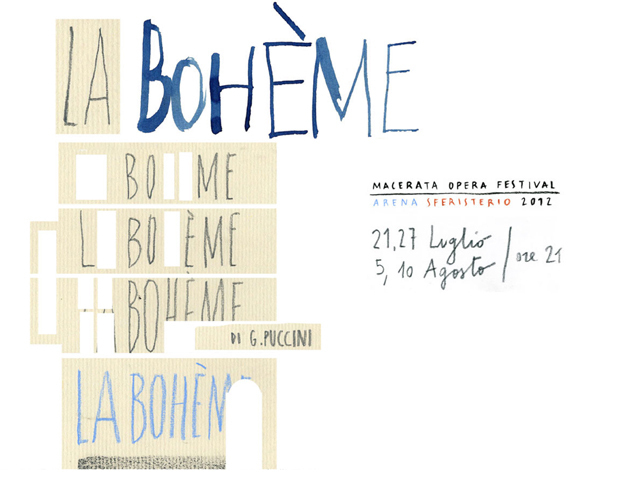 LA BOHÈME
BO ME
L BO ÈME
BOHÈME
DI G. PUCCINI
LA BOHÈM
MACERATA OPERA FESTIVAL
ARENA SFERISTERIO 2012
21, 27 Luglio
5, 10 Agosto / ore 21